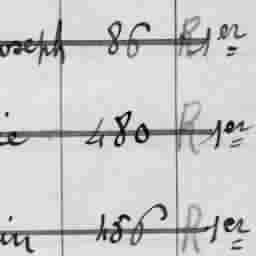 oseph 86 R 1er
ie 480 R 1er
in 486 R 1er